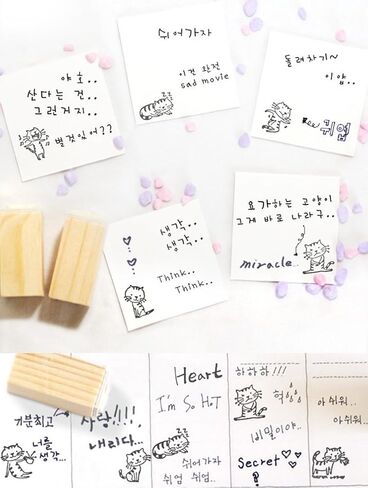 쉬어가자
이건 완전
sad movie
zzz
야호..
산다는 건..
그런거지..
별것있어??
돌려차기~
이얍..
쉬업
생각..
생각..
Think..
Think..
요가하는 고양이
그게 바로 나라구..
miracle..
기분최고
너를
생각..
사랑!!!!
내리다...
Heart
I'm So HoT
쉬어가자
쉬엄 쉬엄..
하하하!!!
헉
비밀이야..
Secret
아 쉬워..
아쉬워..